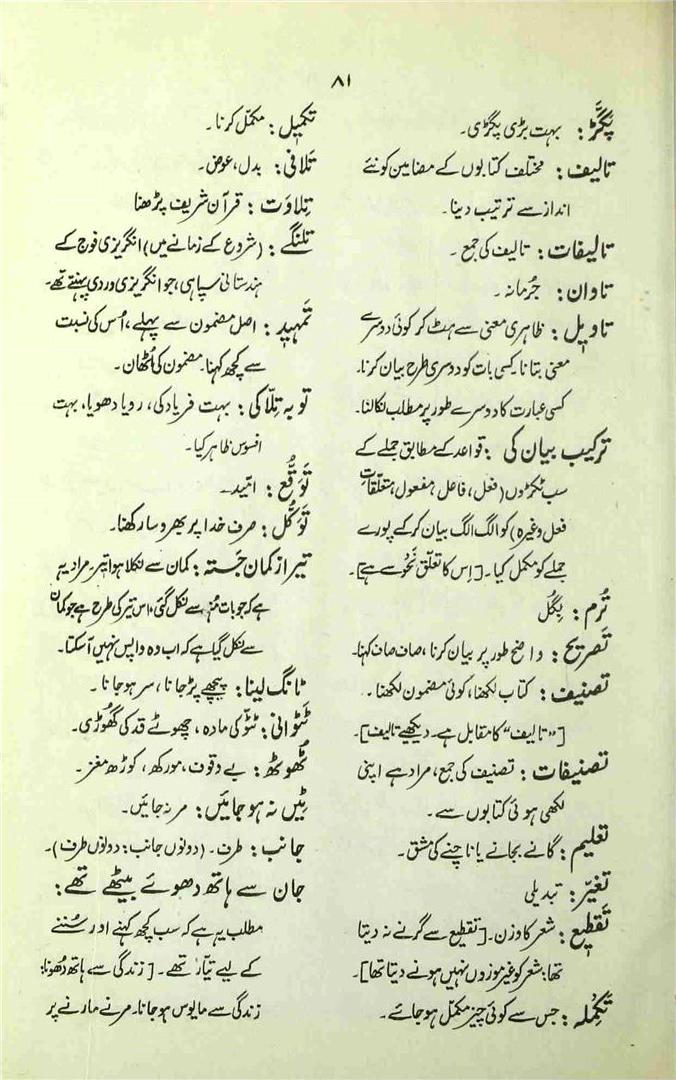 ۸۱
پَگَّڑ: بہت بڑی پگڑی۔
تالیف: مختلف کتابوں کے مضامین کو نئے
انداز سے ترتیب دینا۔
تالیفات: تالیف کی جمع۔
تاوان: جُرمانہ۔
تاویل: ظاہری معنی سے ہٹ کر کوئی دوسرے
معنی بتانا۔ کسی بات کو دوسری طرح بیان کرنا۔
کسی عبارت کا دوسرے طور پر مطلب نکالنا۔
ترکیب بیان کی: قواعد کے مطابق جملے کے
سب ٹکڑوں (فعل، فاعل، مفعول، متعلّقاتِ
فعل وغیرہ) کو الگ الگ بیان کر کے پورے
جملے کو مکمل کیا۔ [اِس کا تعلّق نَحْو سے ہے]۔
تُرم: بِگُل
تَصریح: واضح طور پر بیان کرنا، صاف صاف کہنا۔
تصنیف: کتاب لکھنا، کوئی مضمون لکھنا۔
[”تالیف“ کا مقابل ہے۔ دیکھیے تالیف]۔
تصنیفات: تصنیف کی جمع، مراد ہے اپنی
لکھی ہوئی کتابوں سے۔
تعلیم: گانے بجانے یا ناچنے کی مشق۔
تغیّر: تبدیلی
تَقطیع: شعر کا وزن۔ [تقطیع سے گرنے نہ دیتا
تھا: شعر کو غیر موزوں نہیں ہونے دیتا تھا]۔
تکمِلہ: جس سے کوئی چیز مکمّل ہو جائے۔
تکمیل: مکمّل کرنا۔
تَلافی: بدل، عوض۔
تِلاوَت: قرآن شریف پڑھنا
تلنگے: (شروع کے زمانے میں) انگریزی فوج کے
ہندستانی سپاہی، جو انگریزی وردی پہنتے تھے۔
تَمہید: اصل مضمون سے پہلے، اُس کی نسبت
سے کچھ کہنا۔ مضمون کی اُٹھان۔
توبہ تِلّا کی: بہت فریاد کی، رویا دھویا، بہت
افسوس ظاہر کیا۔
تَوَقُّع: امّید۔
تَوَکُّل: صرف خدا پر بھروسا رکھنا۔
تیر از کمان جَستہ: کمان سے نکلا ہوا تیر۔ مراد یہ
ہے کہ جو بات منہ سے نکل گئی، اس تیر کی طرح ہے جو کمان
سے نکل گیا ہے کہ اب وہ واپس نہیں آسکتا۔
ٹانگ لینا: پیچھے پڑ جانا، سر ہو جانا۔
ٹَٹوانی: ٹٹّو کی مادہ، چھوٹے قد کی گھوڑی۔
ٹھوٹھ: بے وقوف، مورکھ، کوڑھ مغز۔
ٹیں نہ ہو جائیں: مر نہ جائیں۔
جانب: طرف۔ (دونوں جانب: دونوں طرف)۔
جان سے ہاتھ دھوئے بیٹھے تھے:
مطلب یہ ہے کہ سب کچھ کہنے اور سُننے
کے لیے تیّار تھے۔ [زندگی سے ہاتھ دُھونا:
زندگی سے مایوس ہو جانا۔ مرنے مارنے پر